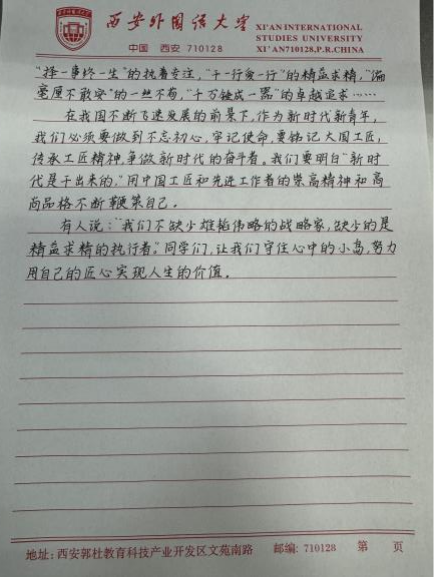 西安外国语大学
XI'AN INTERNATIONAL
STUDIES UNIVERSITY
中国 西安 710128
XI'AN710128,P.R.CHINA
“择一事终一生”的执着专注,“干一行爱一行”的精益求精,“偏
毫厘不敢安”的一丝不苟,“千万锤成一器”的卓越追求……
在我国不断飞速发展的前景下,作为新时代新青年,
我们必须要做到不忘初心,牢记使命,要铭记大国工匠,
传承工匠精神,争做新时代的奋斗者。我们要明白“新时
代是干出来的,”用中国工匠和先进工作者的崇高精神和高
尚品格不断鞭策自己。
有人说:“我们不缺少雄韬伟略的战略家,缺少的是
精益求精的执行者。”同学们,让我们守住心中的小岛,努力
用自己的匠心实现人生的价值。
地址:西安郭杜教育科技产业开发区文苑南路 邮编: 710128 第 页